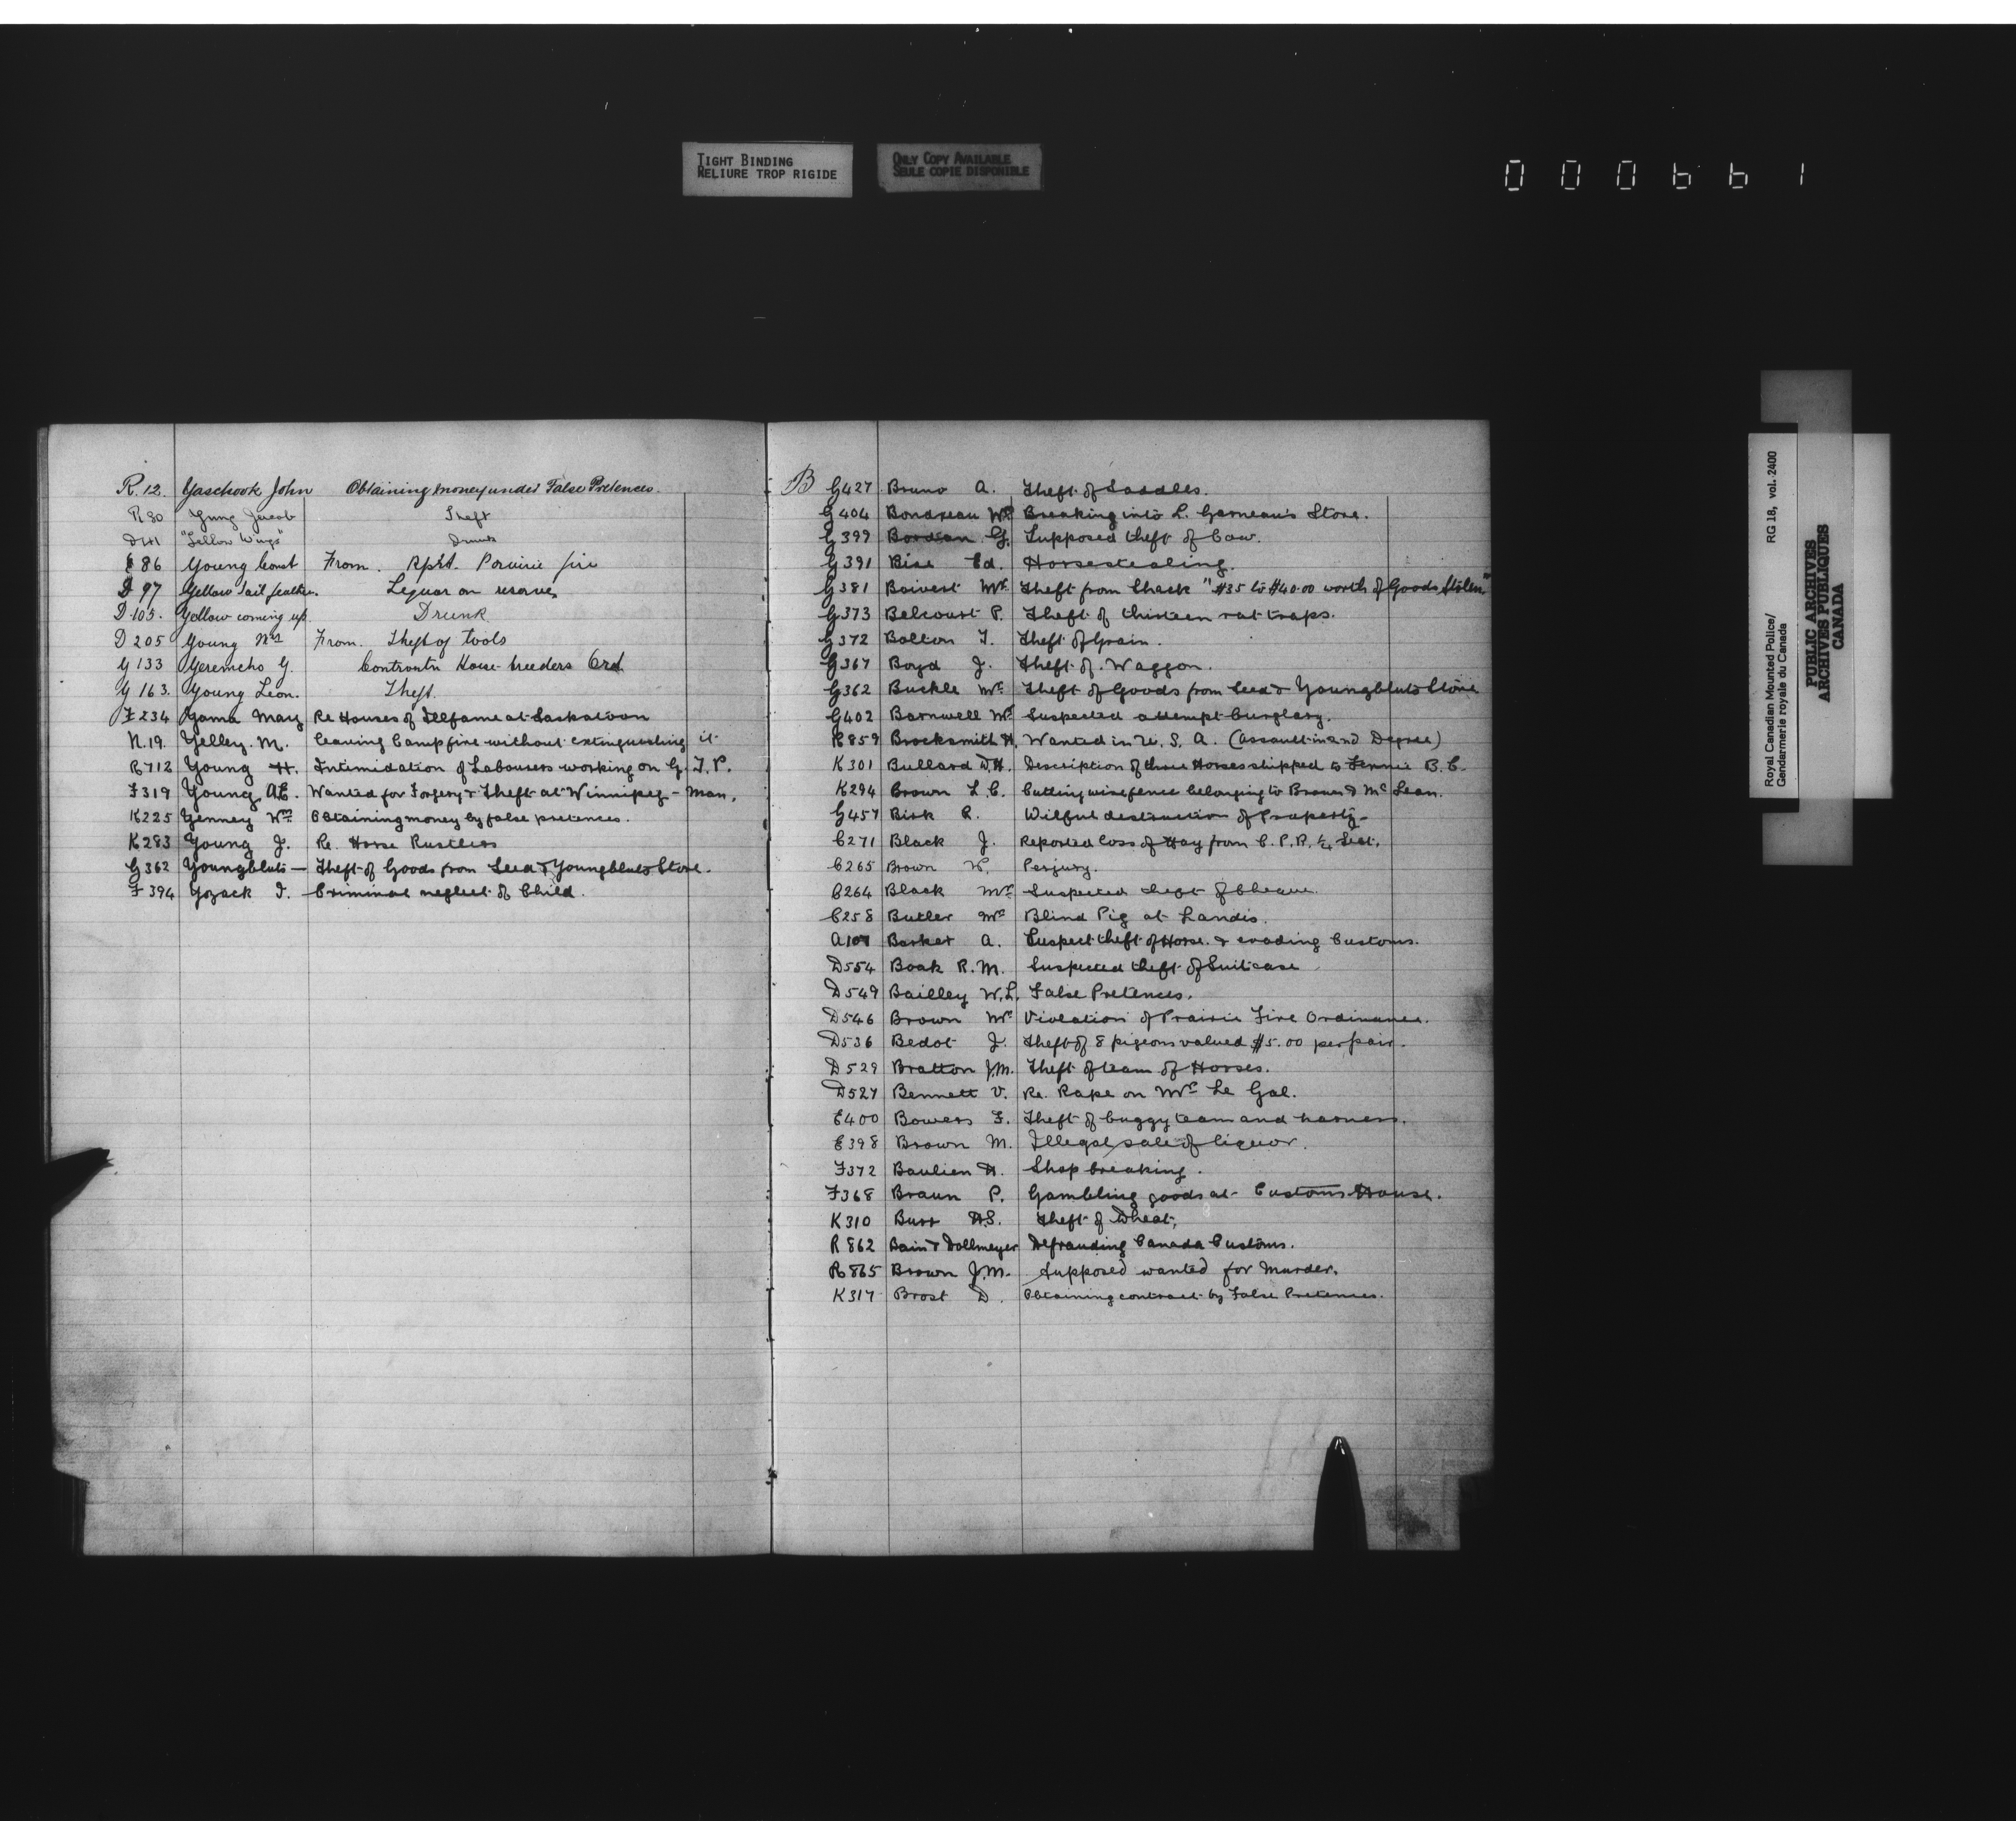 TIGHT BINDING
RELIURE TROP RIGIDE
ONLY COPY AVAILABLE
SEULE COPIE DISPONIBLE
000661
R.12. Yaschook John Obtaining money under False Pretences.
R80 Yung Jacob Theft
"Yellow Wings" Drunk
86 Young Const From. Rprt. Prairie fire
D 97 Yellow tail feathers. Liquor on reserve
D 105. Yellow coming up. Drunk
D 205 Young From. Theft of tools
G 133 Yeremcho G. Contravtn Horse-breeders Ord.
G 163. Young Leon. Theft.
F234 Yama Mary Re Houses of Illfame at Saskatoon
N.19. Yelley. M. Leaving Campfire without extinguishing it
R712 Young H. Intimidation of Labourers working on G. T. P.
F319 Young A.E. Wanted for Forgery & Theft at Winnipeg - Man.
K225 Yenney Wm Obtaining money by false pretences.
K283 Young J. Re. Horse Rustlers
G362 Youngbluts — Theft of Goods from Seed & Youngbluts Store.
F 394 Yozack I. Criminal neglect of Child.
B G427 Bruno A. Theft of Saddles.
G404 Bondreau Wm Breaking into L. Garneau's Store.
G399 Bordian G. Supposed theft of Cow.
G391 Bise Ed. Horsestealing.
G381 Boivert Mr. Theft from Shack "$35 to $40.00 worth of Goods Stolen"
G373 Belcourt P. Theft of thirteen rat traps.
G372 Bolton T. Theft of Grain.
G367 Boyd J. Theft of Waggon.
G362 Buckle Mr. Theft of Goods from Seed & Youngbluts Store
G402 Barnwell Mr Suspected attempt burglary.
R859 Brocksmith H. Wanted in U. S. A. (Assault in 2nd Degree)
K301 Bullard D.H. Description of three Horses shipped to Fernie B. C.
K294 Brown L.C. Cutting wire fence belonging to Brown & Mc Lean.
G457 Bisk R. Wilful destruction of Property-
C271 Black J. Reported loss of Hay from C. P. R. ¼ Sect.
C265 Brown W. Perjury.
C264 Black Mr. Suspected theft of Cheque.
C258 Butler Mr Blind Pig at Landis.
A107 Barker A. Suspect theft of Horse. & evading Customs.
D554 Boak R.M. Suspected theft of Suitcase
D549 Bailley W.L. False Pretences.
D546 Brown Mr. Violation of Prairie Fire Ordinance.
D536 Bedot J. Theft of 8 pigeons valued $5.00 per pair.
D529 Bratton J.M. Theft of team of Horses.
D527 Bennett V. Re. Rape on Mrs. Le Gal.
E400 Bowers F. Theft of buggy team and harness.
E398 Brown M. Illegal sale of liquor.
F372 Baulien H. Shop breaking.
F368 Braun P. Gambling goods at Customs House.
K310 Burr H.S. Theft of Wheat,
R862 Bain & Dollmeyer Defrauding Canada Customs.
R865 Brown J.M. Supposed wanted for Murder.
K317 Brost D. Obtaining contract by False Pretences.
Royal Canadian Mounted Police/ RG 18, vol. 2400
Gendarmerie royale du Canada
PUBLIC ARCHIVES
ARCHIVES PUBLIQUES
CANADA